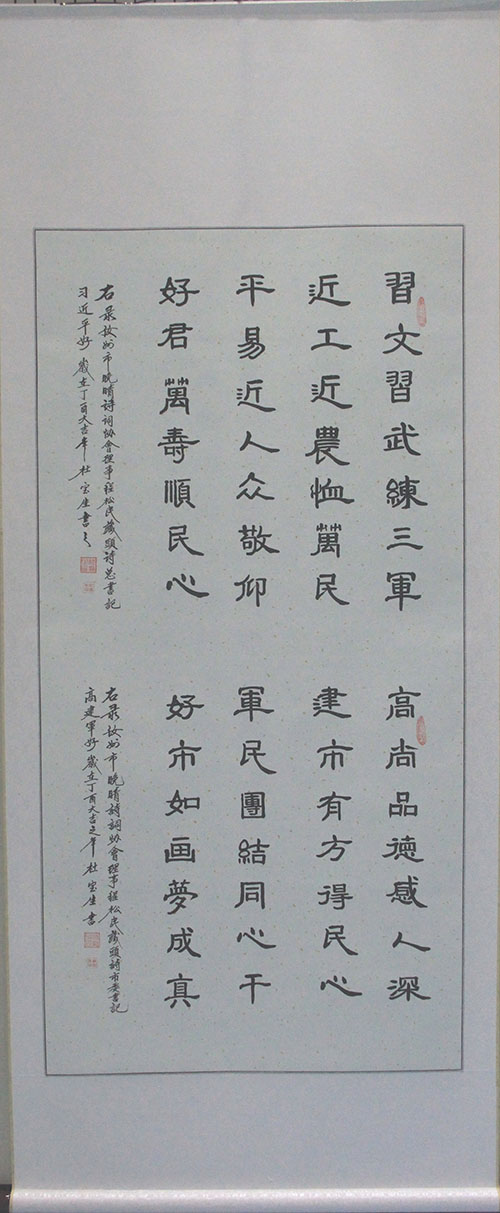 習文習武練三軍
近工近農恤萬民
平易近人众敬仰
好君萬壽順民心
右录故州市晚晴诗词协會理事程松民藏頭诗总書記
习近平好 歲在丁酉大吉年 杜宝生書
高尚品德感人深
建市有方得民心
軍民團結同心干
好市如画夢成真
右录故州市晚晴詩詞协會理事程松民藏頭詩市委書記
高建軍好 歲在丁酉大吉之年 杜宝生書